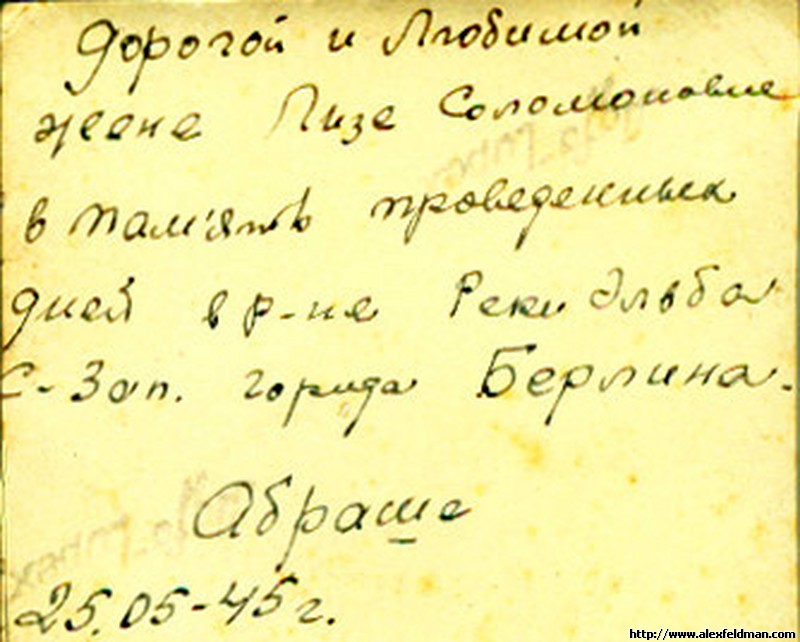 Дорогой и Любимой
жене Лизе Соломоновне
в пам'ять проведенных
дней в р-не Реки Эльба
С-Зап. города Берлина.
Абраша
25.05-45г.
http://www.alexfeldman.com